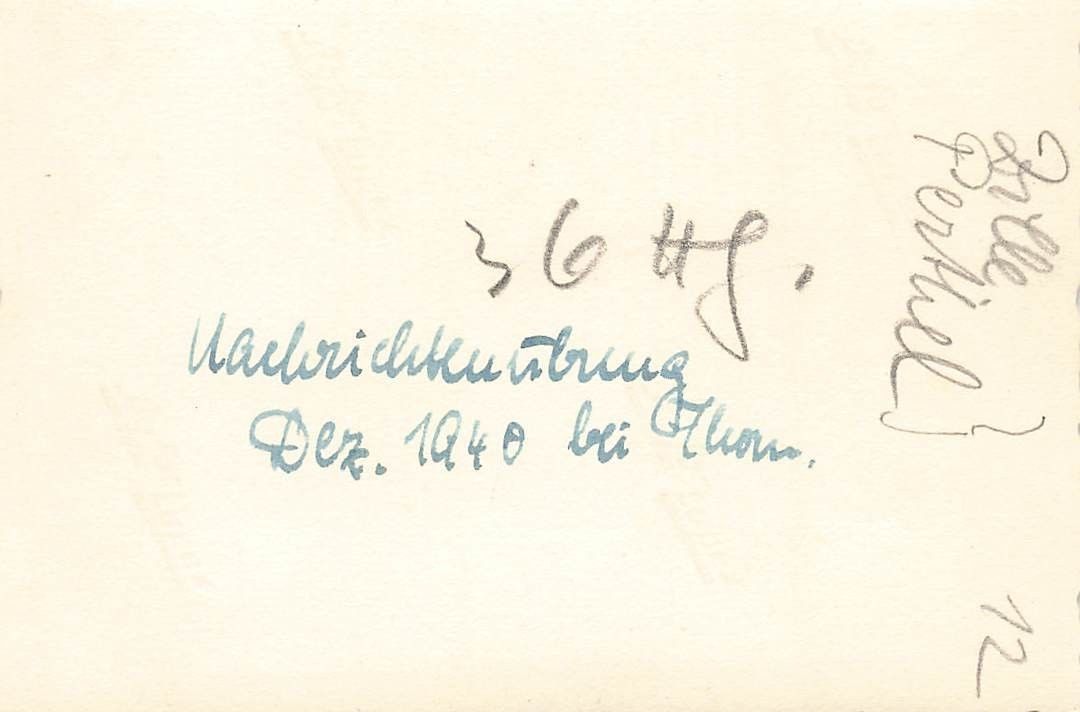 36 Hg.
Nachrichtenübung
Dez. 1940 bei Thorn.
Zille }
Pertiel }
12